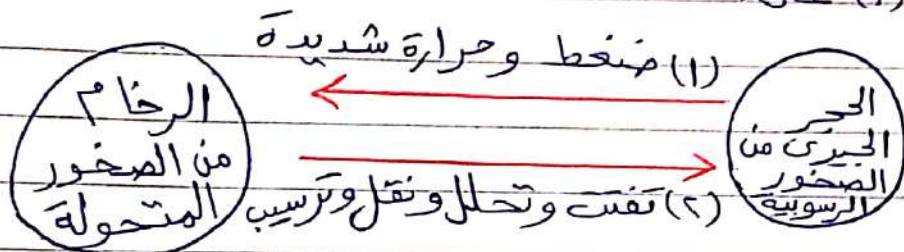 (١) ضغط وحرارة شديدة
الحجر
الجيرى من
الصخور
الرسوبية
الرخام
من الصخور
المتحولة
(٢) تفتت وتحلل ونقل وترسيب